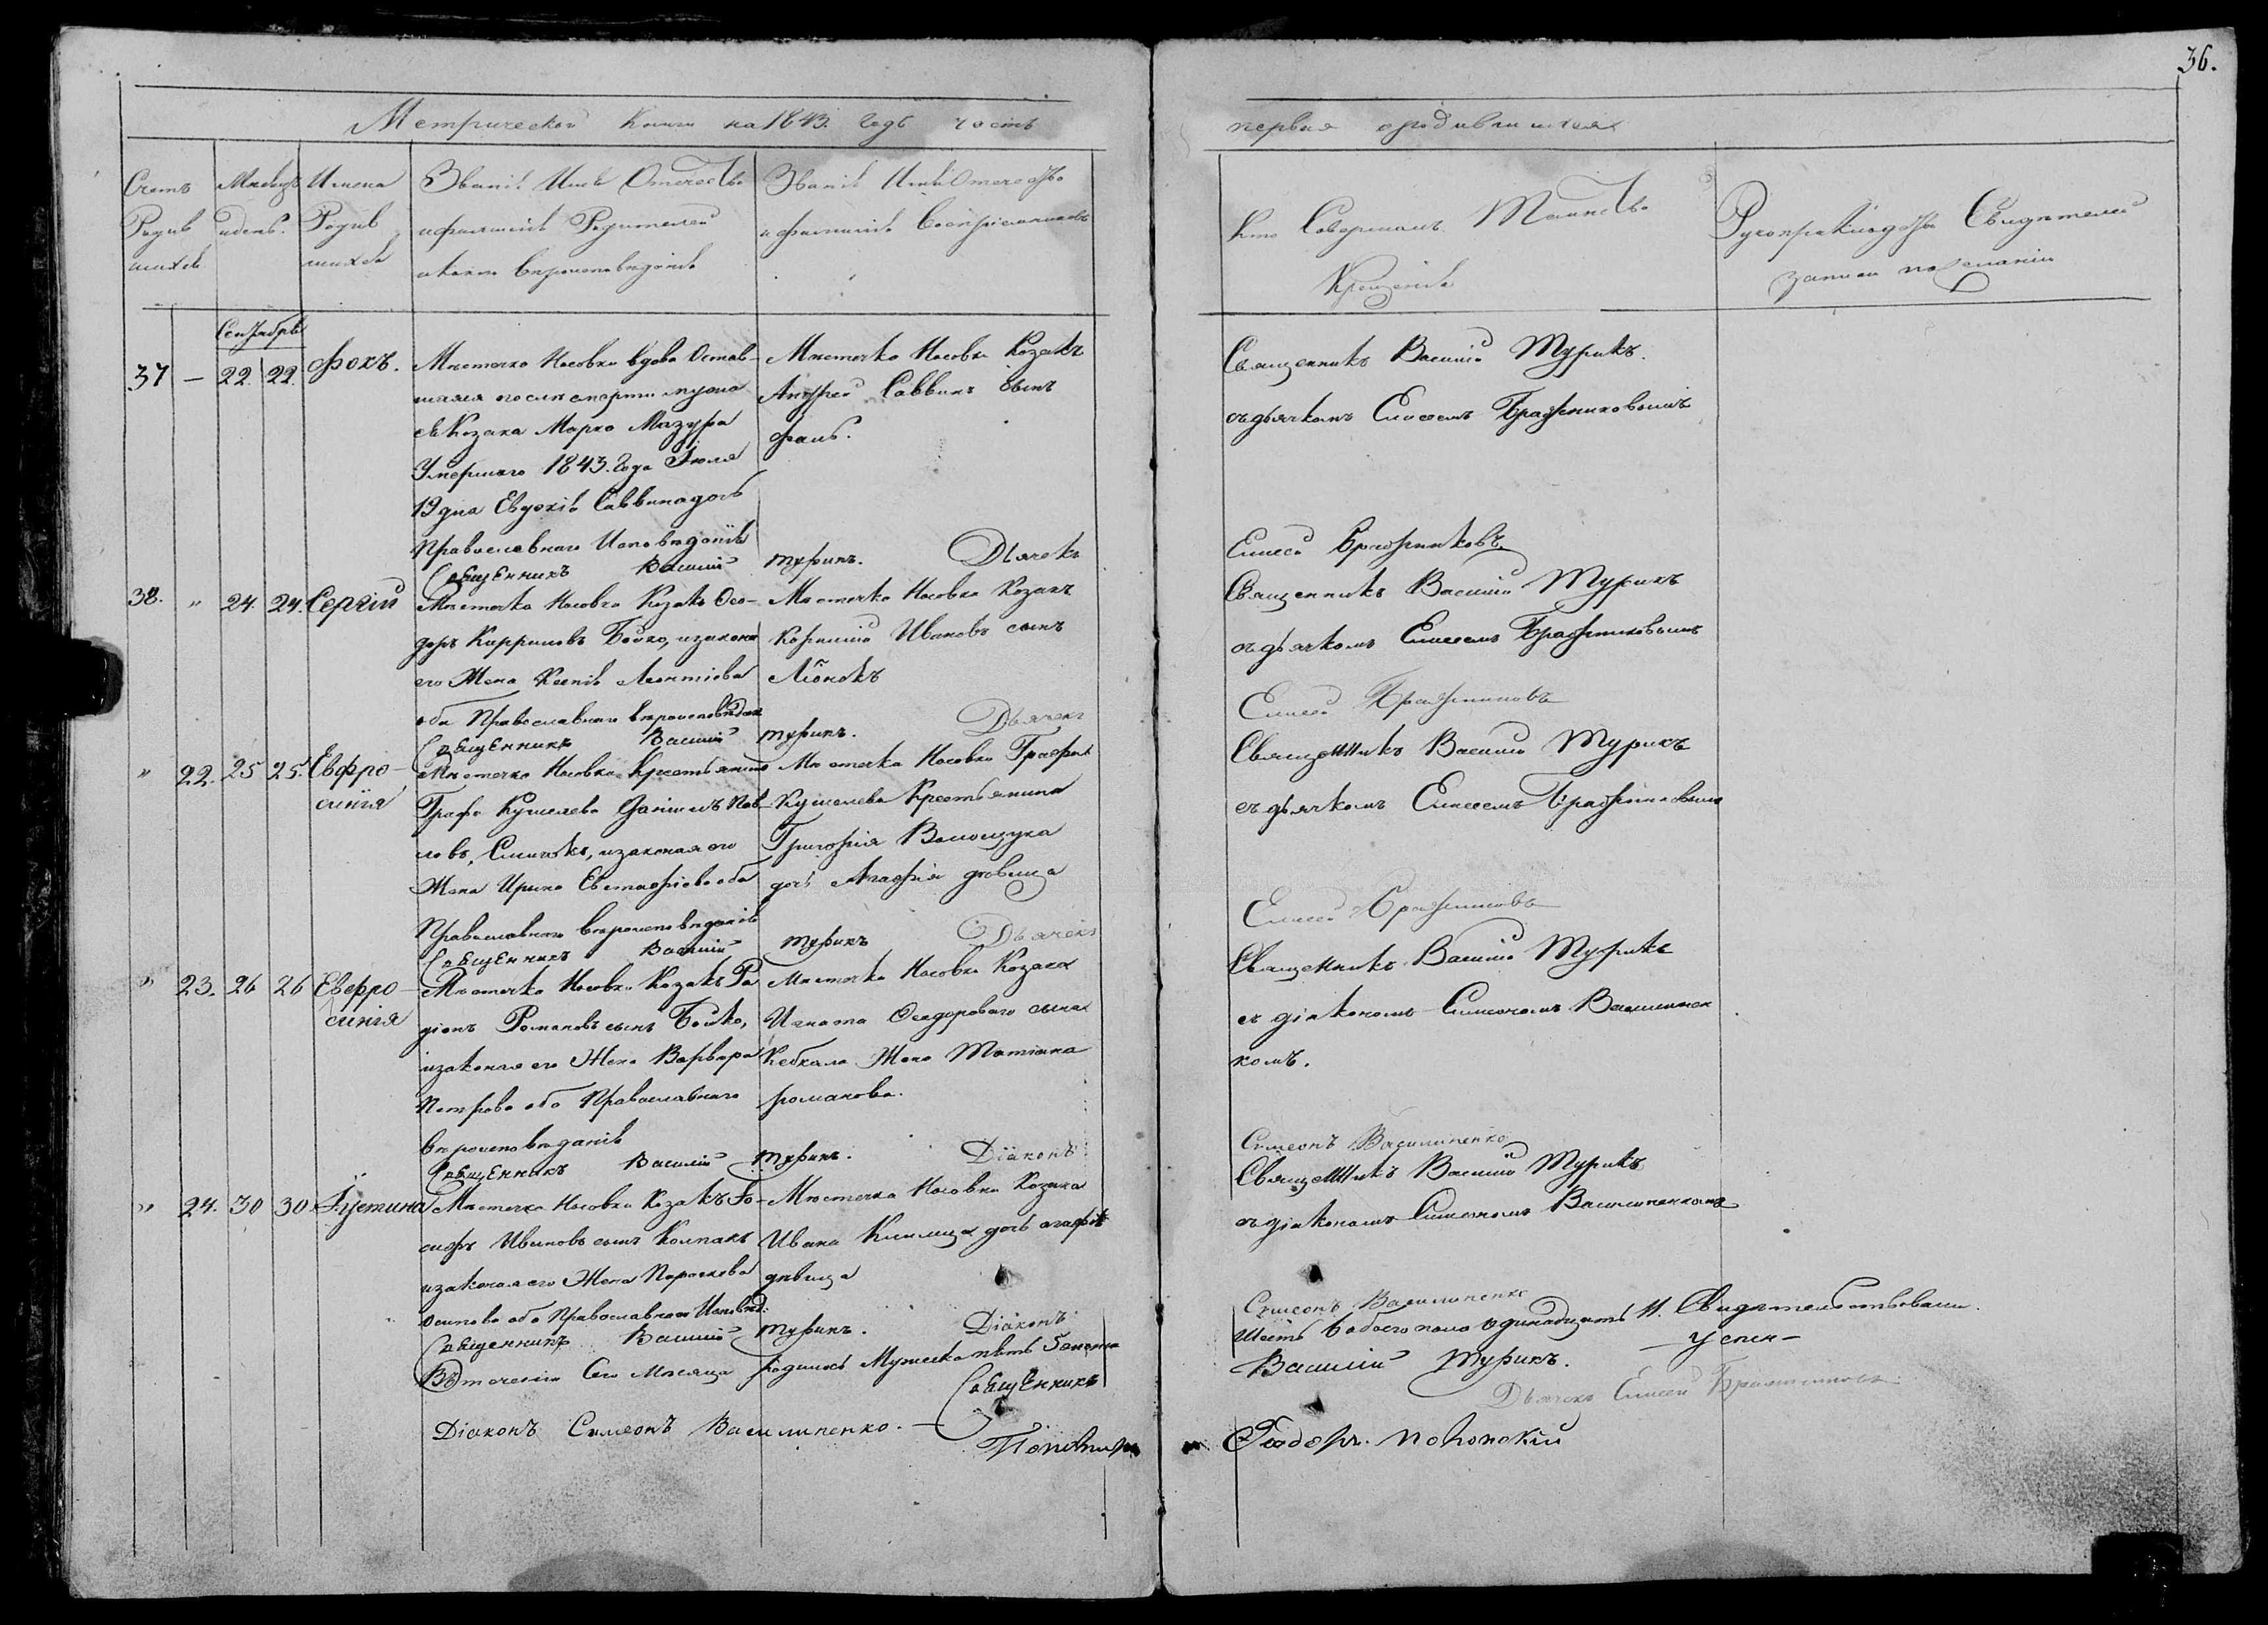 36.
Метрической книги на 1843. годъ часть
первая о родившихся
Счетъ Родив шихся
Мѣсяцъ и день.
Имена Родив шихся
Званіе Имя Отечество
и фамилія Родителей
и какого вѣроисповѣданія
Званіе Имя Отечество
и фамилія Воспріемниковъ
Кто Совершалъ Таинство
Крещенія
Рукоприкладство Свидѣтелей
записи по желанію
Сентябрь
37 — 22. 22. Фокъ.
Мѣстечка Носовки вдова Остав-
шаяся послѣ смерти мужа
ея Козака Марка Мазура
Умершаго 1843. года Іюля
19 дня Евдокія Саввина дочь
Православнаго Исповѣданія
Мѣстечка Носовки Козакъ
Андрей Саввинъ сынъ
Священникъ Василій Турикъ.
съ дьячкомъ Елисеемъ Бражниковымъ
Священникъ Василій Турикъ. Дьячекъ Елисей Бражниковъ
38. " 24. 24. Сергій
Мѣстечка Носовки Козакъ Ѳео-
доръ Кирриловъ Бойко, и законная
его Жена Ксенія Леонтіева
оба Православнаго вѣроисповѣданія
Мѣстечка Носовки Козакъ
Корнилій Ивановъ сынъ
Священникъ Василій Турикъ
съ дьячкомъ Елисеемъ Бражниковымъ
Священникъ Василій Турикъ. Дьячекъ Елисей Бражниковъ
" 22. 25 25. Евфро-
синія
Мѣстечка Носовки Крестьянинъ
Графа Кушелева Даніилъ Пав-
ловъ, и законная его
Жена Ирина Евстафіева оба
Православнаго вѣроисповѣданія
Мѣстечка Носовки Графа
Кушелева Крестьянина
Григорія Волощука
дочь Агафія дѣвица
Священникъ Василій Турикъ
съ дьячкомъ Елисеемъ Бражниковымъ
Священникъ Василій Турикъ Дьячекъ Елисей Бражниковъ
" 23. 26 26 Евфро-
синія
Мѣстечка Носовки Козакъ Ро
діонъ Романовъ сынъ Бойко,
и законная его Жена Варвара
Петрова оба Православнаго
вѣроисповѣданія
Мѣстечка Носовки Козака
Игната Ѳеодорова сына
Кебкала Жена Татіана
романова.
Священникъ Василій Турикъ
съ діакономъ Симеономъ Василинен
комъ.
Священникъ Василій Турикъ. Діаконъ Симеонъ Василиненко
" 24. 30 30 Іустина
Мѣстечка Носовки Козакъ Іо-
сифъ Ивановъ сынъ Колпакъ
и законная его Жена Параскева
Осипова оба Православнаго Исповѣд:
Мѣстечка Носовки Козака
Ивана Климца дочь агафія
дѣвица
Священникъ Василій Турикъ
съ діакономъ Симеономъ Василиненкомъ
Священникъ Василій Турикъ. Діаконъ Симеонъ Василиненко
Въ теченіи Сего Мѣсяца родилось Мужеска пять 5 женска
шесть 6 обоего пола одинадцать 11. Свидѣтельствовали.
Священникъ Василій Турикъ.
Дьячекъ Елисей Бражниковъ
Діаконъ Симеонъ Василиненко.